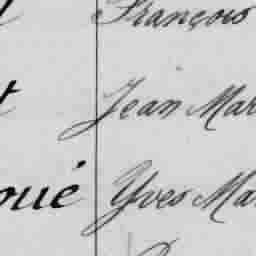 François
t Jean Mar
oué Yves Ma